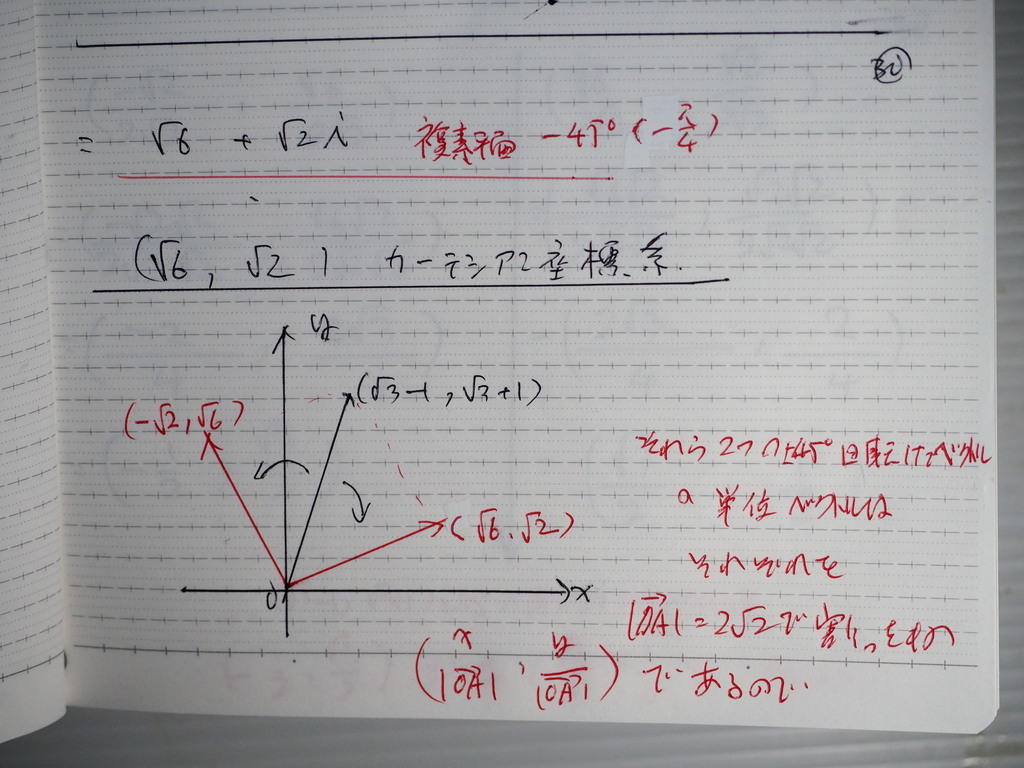 = √6 + √2 i 複素平面 -45° (-π/4)
(√6, √2) カーテシアン座標系.
y
(√3-1, √3+1)
(-√2, √6)
それら2つの±45°回転したベクトル
の単位ベクトルは
(√6, √2)
それぞれを
O x
|OA| = 2√2で割ったもの
(x/|OA|, y/|OA|) であるので..